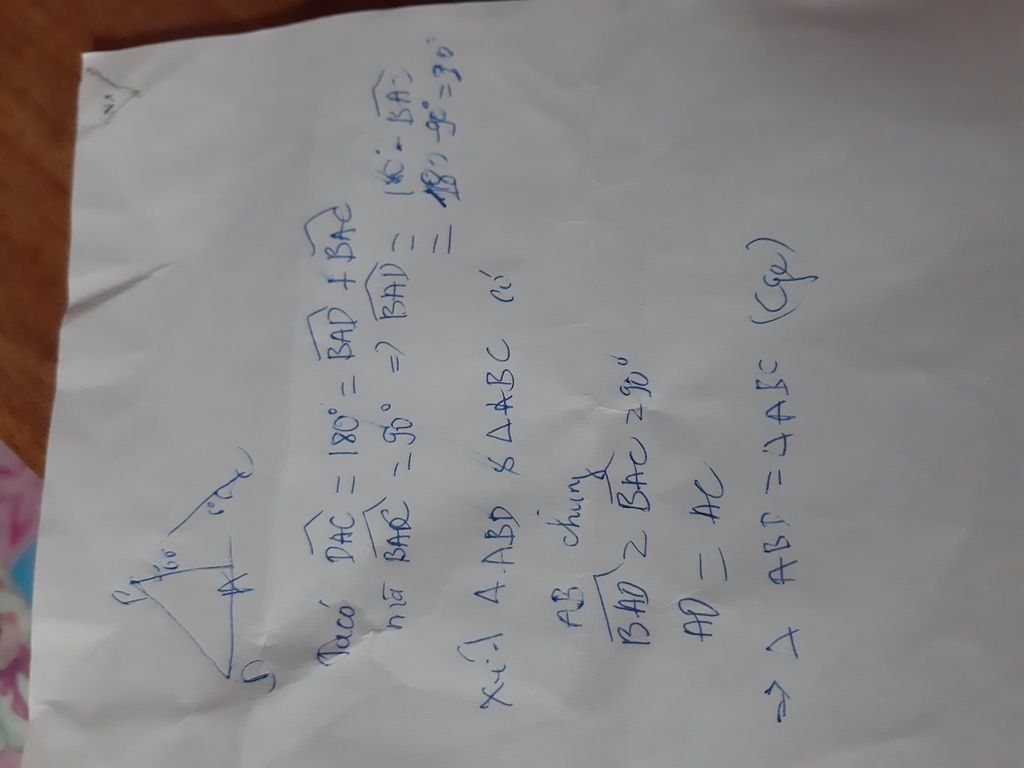 B
60°
A
D
Ta có DAC = 180° = BAD + BAC
mà BAC = 90° => BAD = 180° - BA
= 180 - 90° = 90°
Xét Δ ABD & Δ ABC có
AB chung
BAD = BAC = 90°
AD = AC
=> Δ ABD = Δ ABC (cgc)